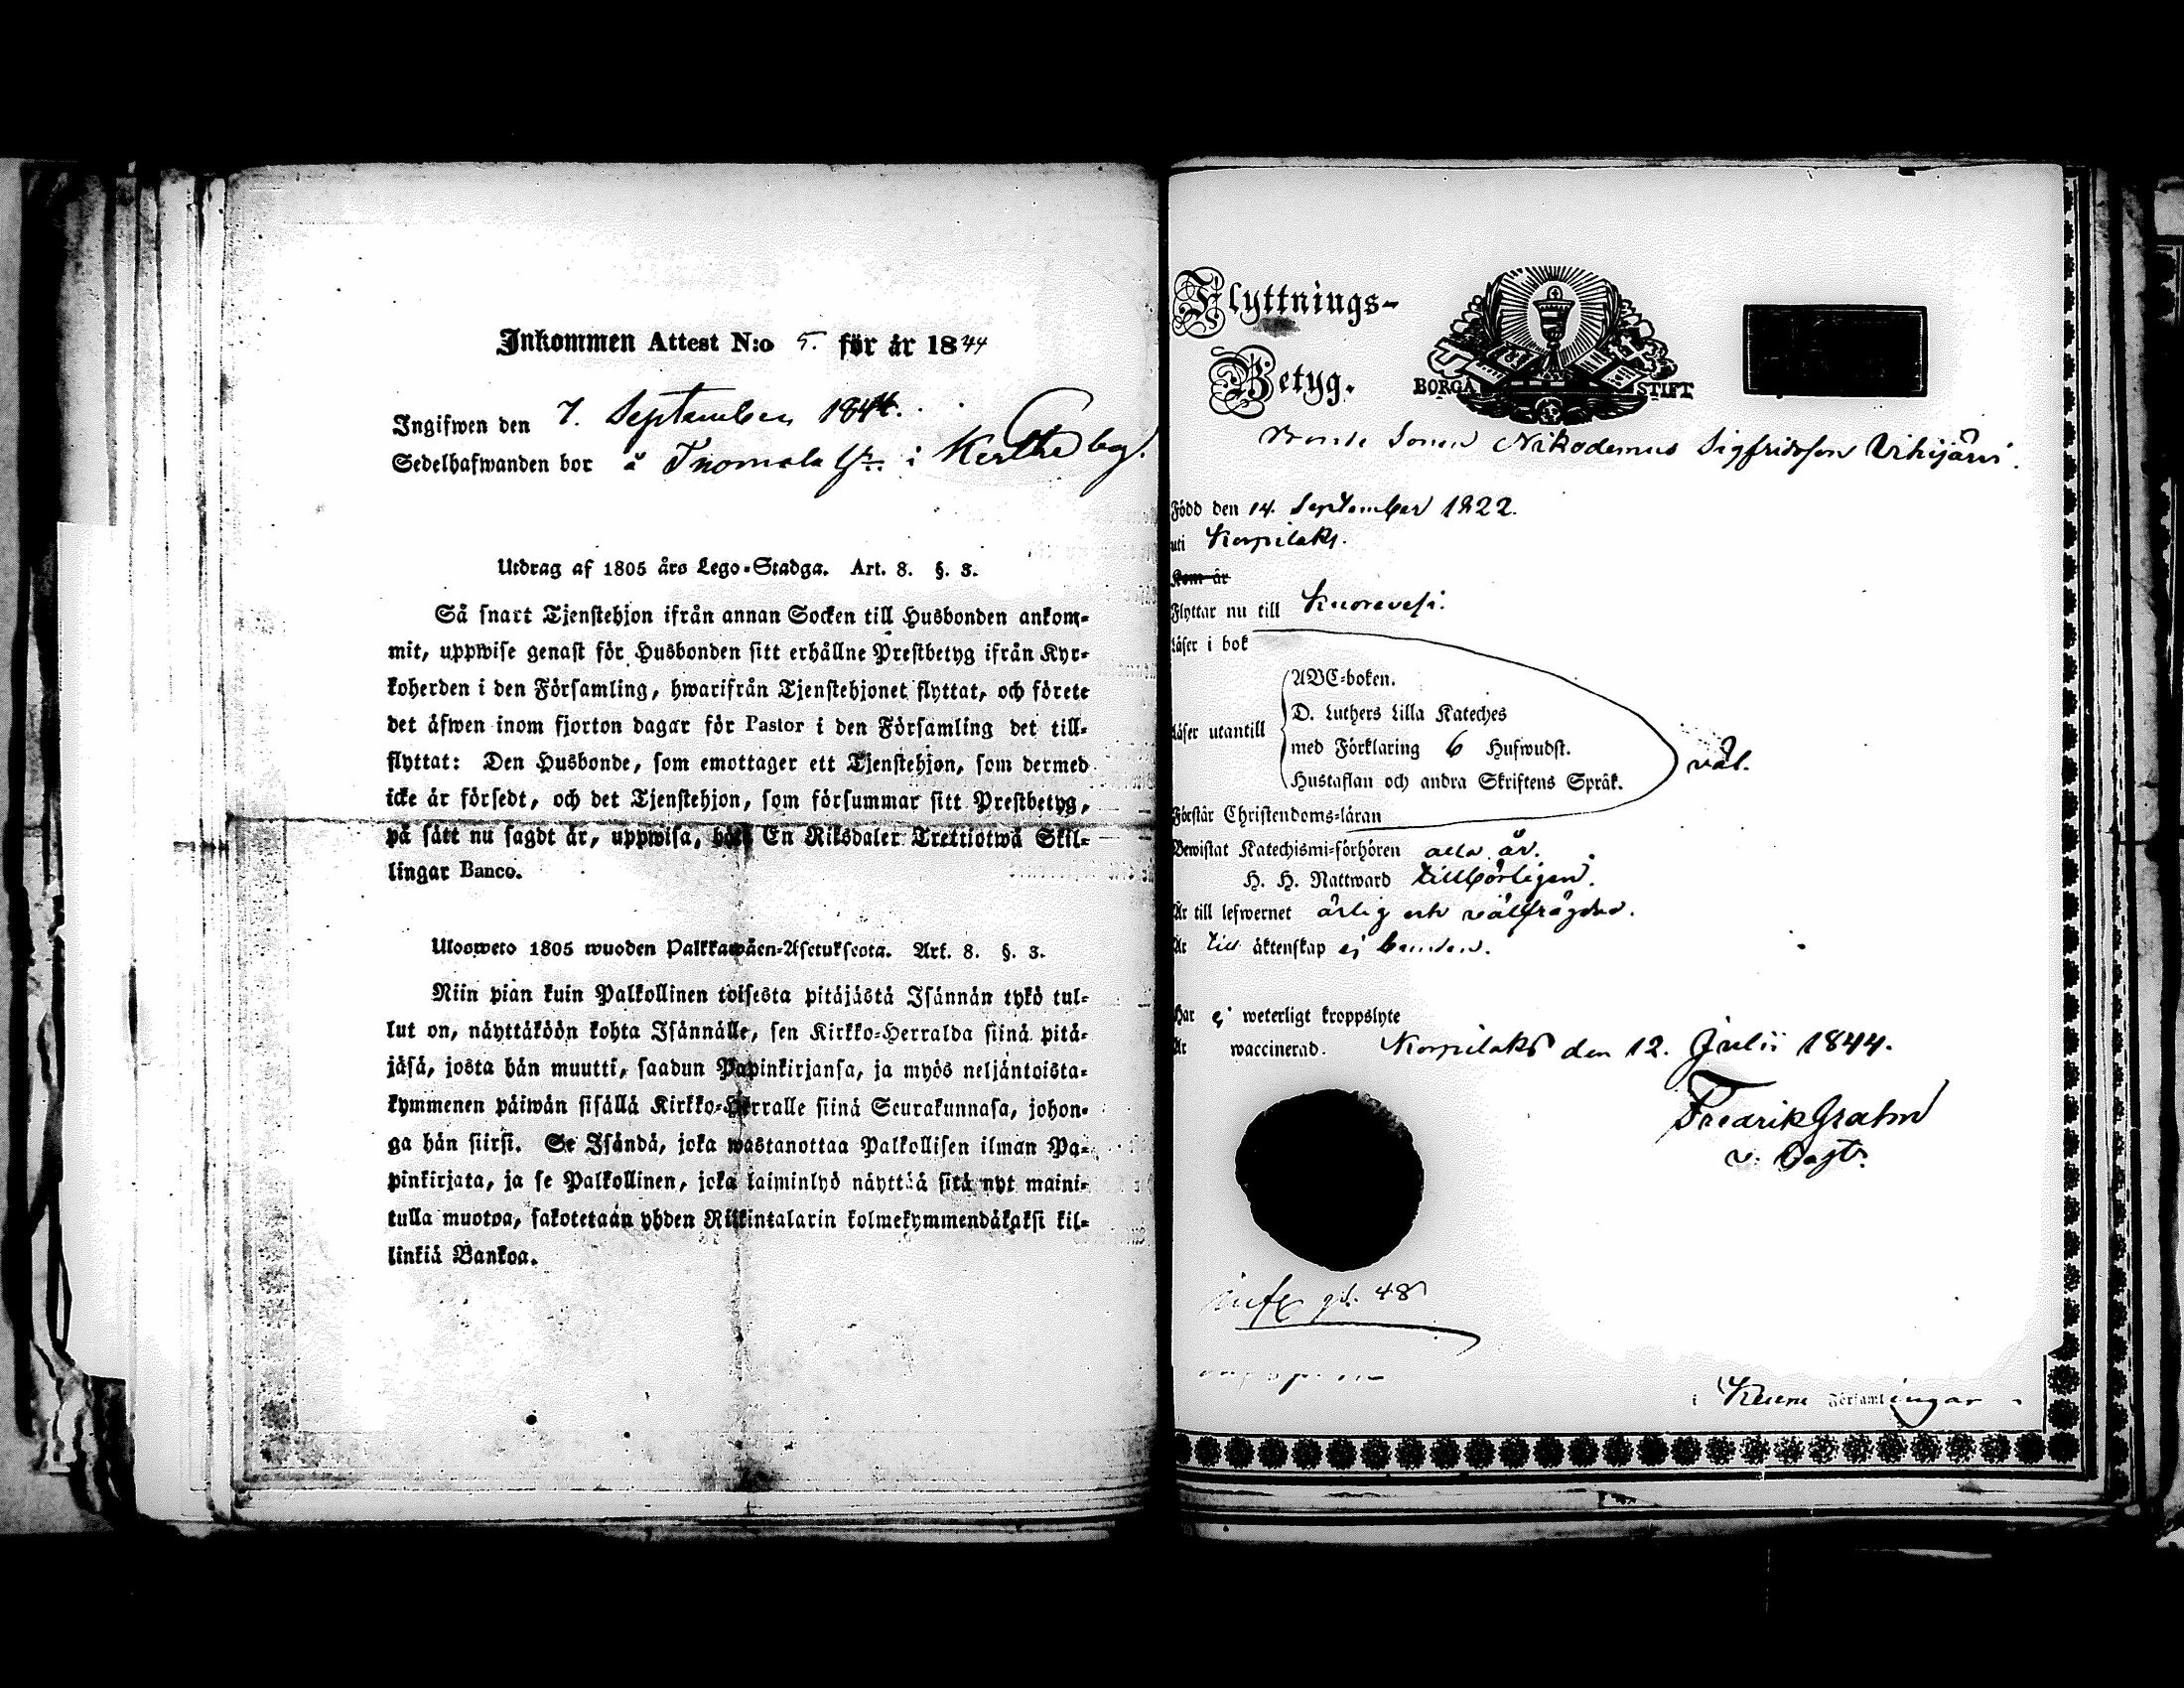 Inkommen Attest N:o 5. för år 1844
Ingifwen den 7. September 1844.
Sedelhafwanden bor å Tuomala i
Utdrag af 1805 års Lego-Stadga. Art. 8. §. 3.
Så snart Tjenstehjon ifrån annan Socken till Husbonden ankom-
mit, uppwise genast för Husbonden sitt erhållne Prestbetyg ifrån Kyr-
koherden i den Församling, hwarifrån Tjenstehjonet flyttat, och förete
det äfwen inom fjorton dagar för Pastor i den Församling det till-
flyttat: Den Husbonde, som emottager ett Tjenstehjon, som dermed
icke är försedt, och det Tjenstehjon, som försummar sitt Prestbetyg,
på sätt nu sagdt är, uppwisa, böte En Riksdaler Trettiotwå Skil-
lingar Banco.
Ulosweto 1805 wuoden Palkkawäen-Asetuksesta. Art. 8. §. 3.
Niin pian kuin Palkollinen toisesta pitäjästä Isännän tykö tul-
lut on, näyttäköön kohta Isännälle, sen Kirkko-Herralda siinä pitä-
jäsä, josta hän muutti, saadun Papinkirjansa, ja myös neljäntoista-
kymmenen päiwän sisällä Kirkko-Herralle siinä Seurakunnasa, johon-
ga hän siirsi. Se Isändä, joka wastanottaa Palkollisen ilman Pa-
pinkirjata, ja se Palkollinen, joka laiminlyö näyttää sitä nyt maini-
tulla muotoa, sakotetaan yhden Riikintalarin kolmekymmendäkaksi kil-
linkiä Bankoa.
Flyttnings-
Betyg.
BORGÅ STIFT
Bonde Sonen Nikodemus Sigfridsson Vihijärvi.
Född den 14. September 1822.
uti Korpilaks.
Kom år
Flyttar nu till Kuorevesi.
Läser i bok
ABC-boken.
D. Luthers Lilla Kateches
Läser utantill
med Förklaring 6 Hufwudst.
Hustaflan och andra Skriftens Språk.
väl.
Förstår Christendoms-läran
Bewistat Katechismi-förhören alla år.
H. H. Nattward tillbörligen.
Är till lefwernet ärlig och välfrägdad.
Är till äktenskap ej bunden.
Har ej weterligt kroppslyte
Är waccinerad. Korpilaks den 12. Julii 1844.
Fredrik Grahn
v. Past:
48
i Församlingar